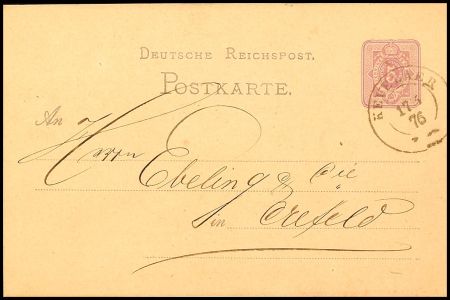 DEUTSCHE REICHSPOST.
POSTKARTE.
KEVELAER
17
76
An
Herrn Ebeling & Cie
in Crefeld